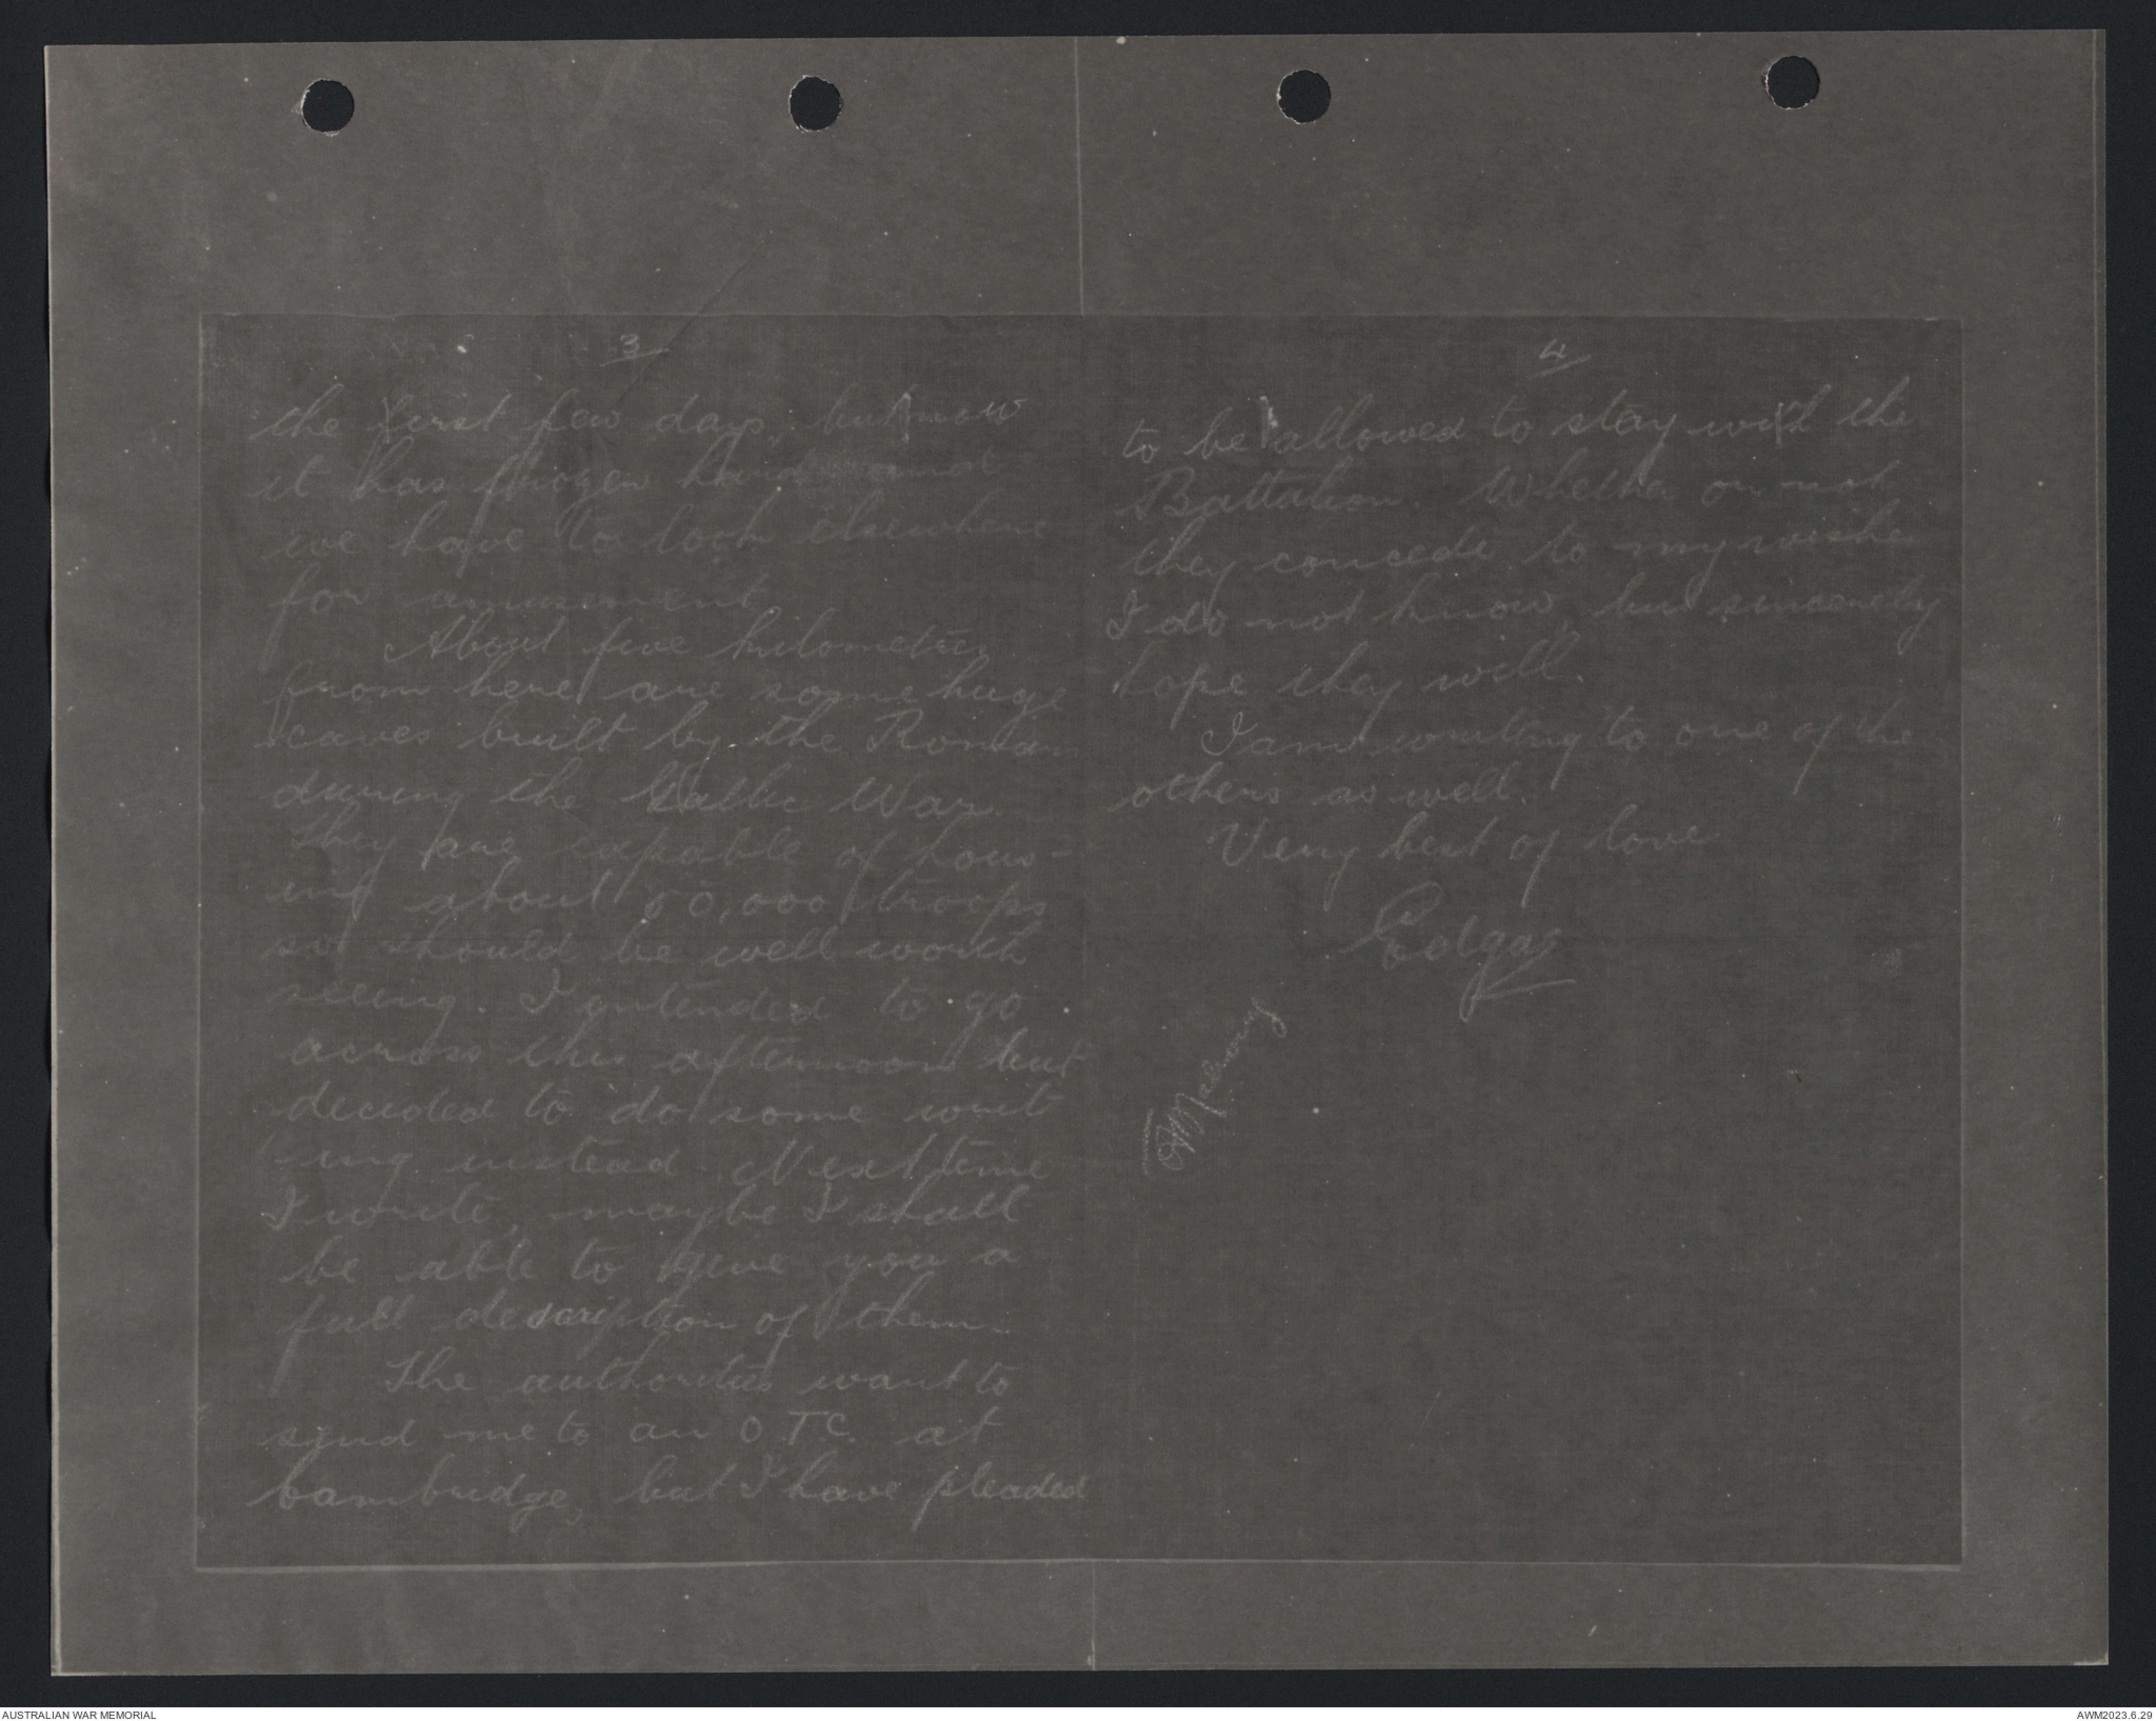 3
the first few days, but now
it has frozen hard and
we have to look elsewhere
for amusement.
About five kilometres
from here are some huge
caves built by the Romans
during the Gallic War.
They are capable of hous-
ing about 50,000 troops
so should be well worth
seeing. I intended to go
across this afternoon but
decided to do some writ
-ing instead. Next time
I write, maybe I shall
be able to give you a
full description of them.
The authorities want to
send me to an O.T.C. at
Cambridge, but I have pleaded
4
to be allowed to stay with the
Battalion. Whether or not
they concede to my wishes
I do not know, but sincerely
hope they will.
I am writing to one of the
others as well.
Very best of love
Edgar
AUSTRALIAN WAR MEMORIAL
AWM2023.6.29